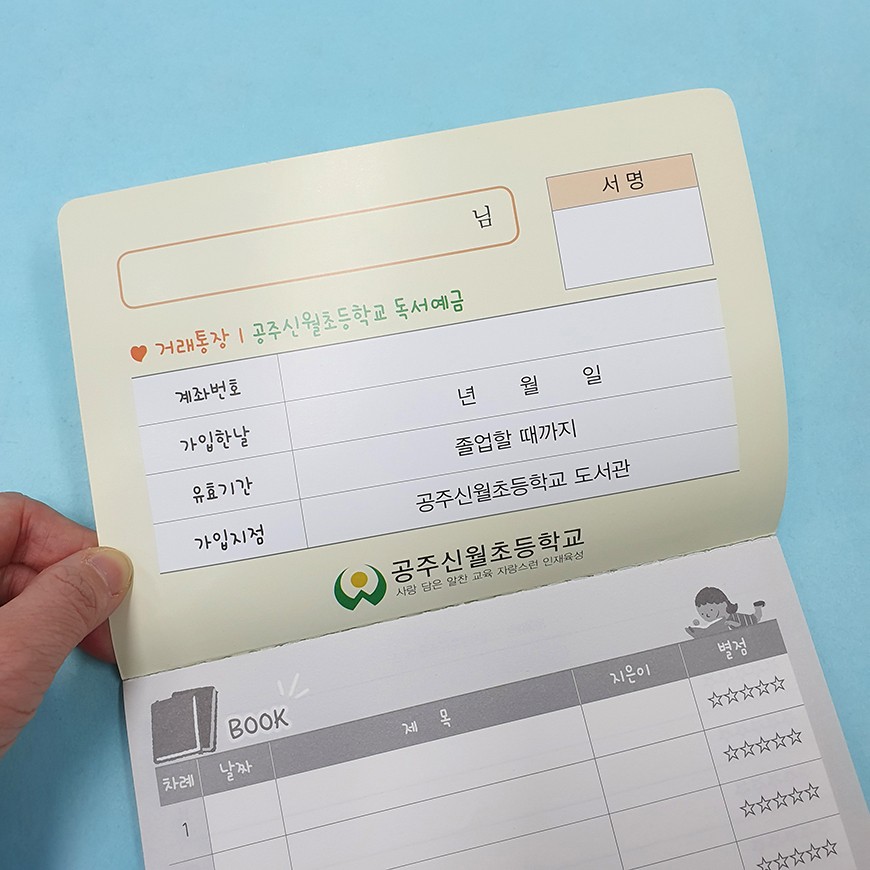 님
서 명
거래통장 | 공주신월초등학교 독서예금
계좌번호
가입한날 년 월 일
유효기간 졸업할 때까지
가입지점 공주신월초등학교 도서관
공주신월초등학교
사랑 담은 알찬 교육 자랑스런 인재육성
BOOK
차례 날짜 제 목 지은이 별점
1 ☆☆☆☆☆
☆☆☆☆☆
☆☆☆☆☆
☆☆☆☆☆